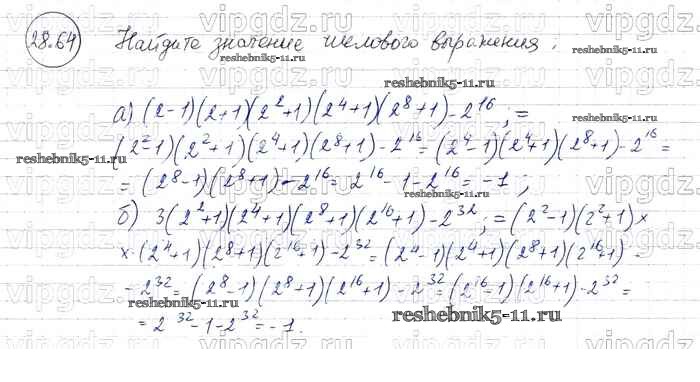 28.64) Найдите значение числового выражения.
а) (2-1)(2+1)(2²+1)(2⁴+1)(2⁸+1)-2¹⁶; =
(2²-1)(2²+1)(2⁴+1)(2⁸+1)-2¹⁶=(2⁴-1)(2⁴+1)(2⁸+1)-2¹⁶=
=(2⁸-1)(2⁸+1)-2¹⁶=2¹⁶-1-2¹⁶=-1;
б) 3(2²+1)(2⁴+1)(2⁸+1)(2¹⁶+1)-2³²; =(2²-1)(2²+1)×
×(2⁴+1)(2⁸+1)(2¹⁶+1)-2³²=(2⁴-1)(2⁴+1)(2⁸+1)(2¹⁶+1)-
-2³²=(2⁸-1)(2⁸+1)(2¹⁶+1)-2³²=(2¹⁶-1)(2¹⁶+1)-2³²=
=2³²-1-2³²=-1.
reshebnik5-11.ru
reshebnik5-11.ru
reshebnik5-11.ru
reshebnik5-11.ru
reshebnik5-11.ru
reshebnik5-11.ru
reshebnik5-11.ru
reshebnik5-11.ru
vipgdz.ru